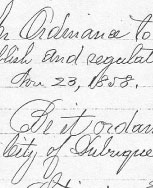 An Ordinance to
blish and regulat
Nov. 23, 1858.
Be it ordain
City of Dubuque